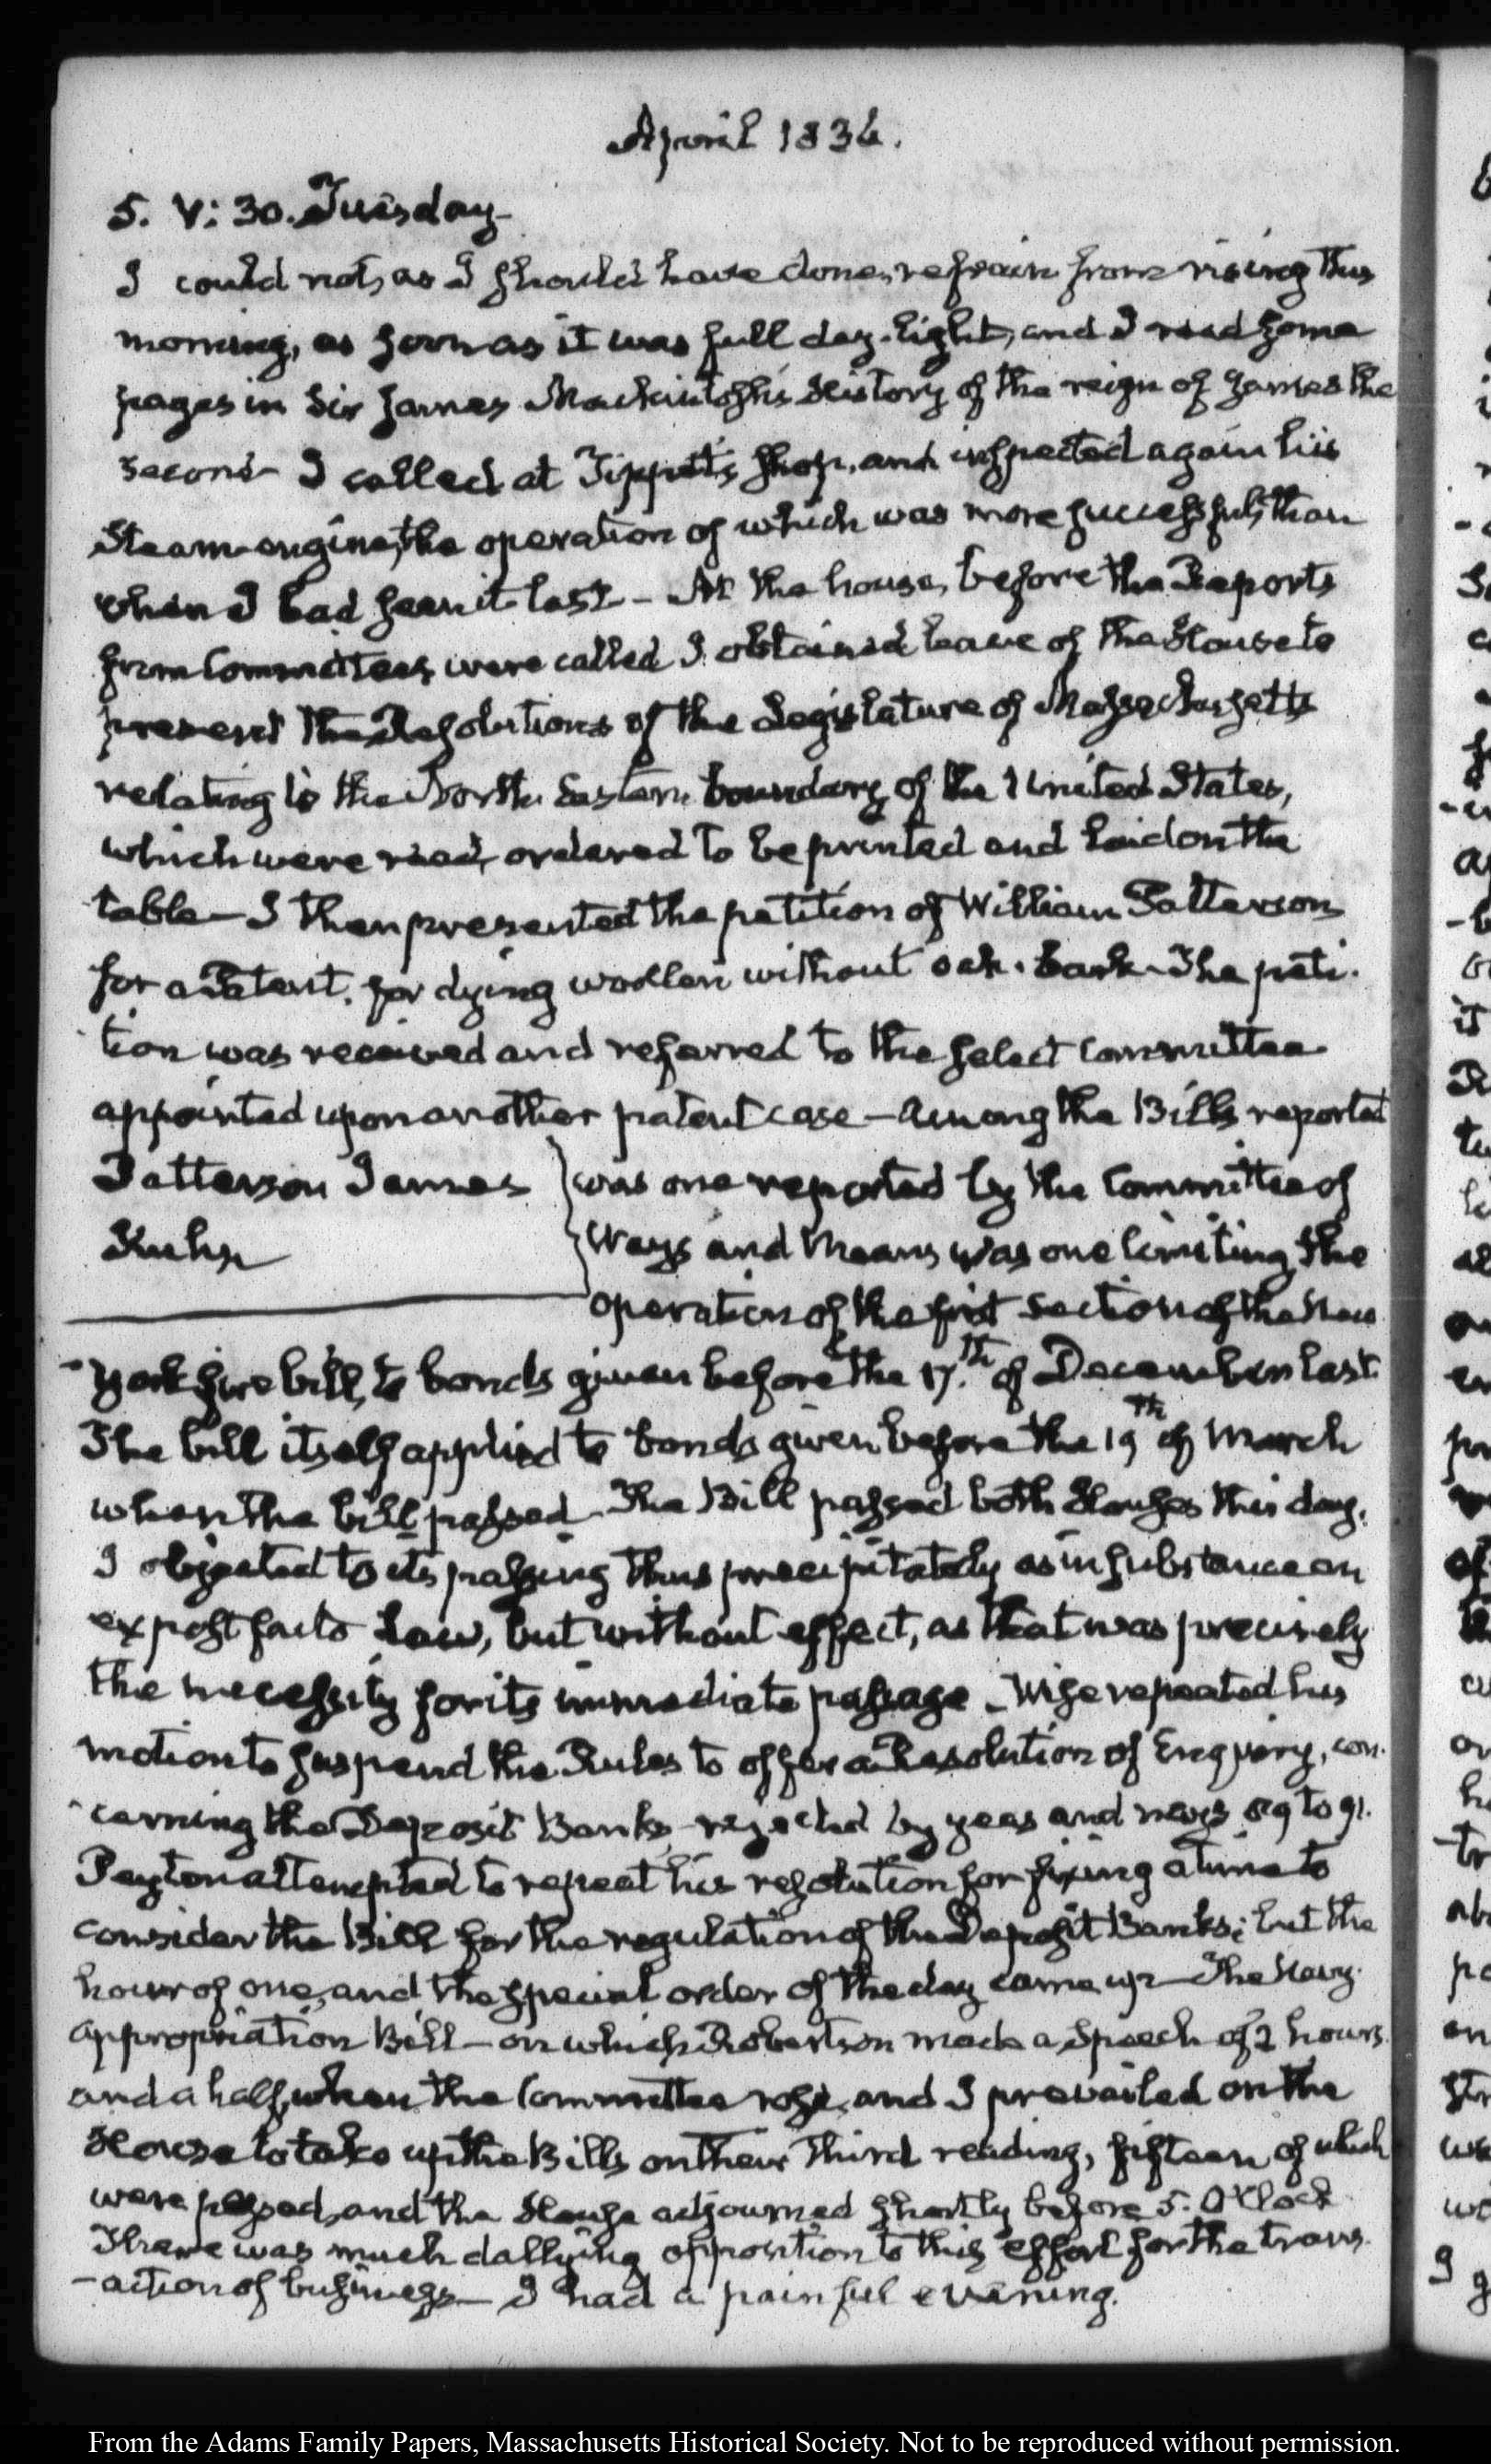 April 1836.
5. V: 30. Tuesday
I could not, as I should have done, refrain from rising this
morning, as soon as it was full day-light, and I read some
pages in Sir James Mackintosh's History of the reign of James the
second - I called at Tippett's shop, and inspected again his
Steam-engine, the operation of which was more successful, than
when I had seen it last - At the house, before the Reports
from Committees were called I obtained leave of the House to
present the Resolutions of the Legislature of Massachusetts
relating to the North Eastern boundary of the United States,
which were read, ordered to be printed and laid on the
table - I then presented the petition of William Patterson
for a Patent, for dying woollen without oak-bark - The peti-
tion was received and referred to the select Committee
appointed upon another patent case - Among the Bills reported
Patterson James
Kuhn
was one reported by the Committee of
Ways and Means was one limiting the
operation of the first section of the New
-York fire bill, to bonds given before the 17.th of December last
The bill itself applied to bonds given before the 19th of March
when the bill passed - The Bill passed both Houses this day.
I objected to its passing thus precipitately as in substance an
ex post facto Law, but without effect, as that was precisely
the necessity for its immediate passage - Wise repeated his
motion to suspend the Rules to offer a Resolution of Enquiry, con-
-cerning the Deposit Banks - rejected by yeas and nays 89 to 91.
Peyton attempted to repeat his resolution for fixing a time to
consider the Bill for the regulation of the Deposit Banks; but the
hour of one, and the special order of the day came up - The Navy
appropriation Bill - on which Robertson made a Speech of 2 hours
and a half, when the Committee rose, and I prevailed on the
House to take up the Bills on their third reading, fifteen of which
were passed, and the House adjourned shortly before 5. O'Clock
There was much dallying opposition to this effort for the trans-
-action of business - I had a painful evening.
From the Adams Family Papers, Massachusetts Historical Society. Not to be reproduced without permission.